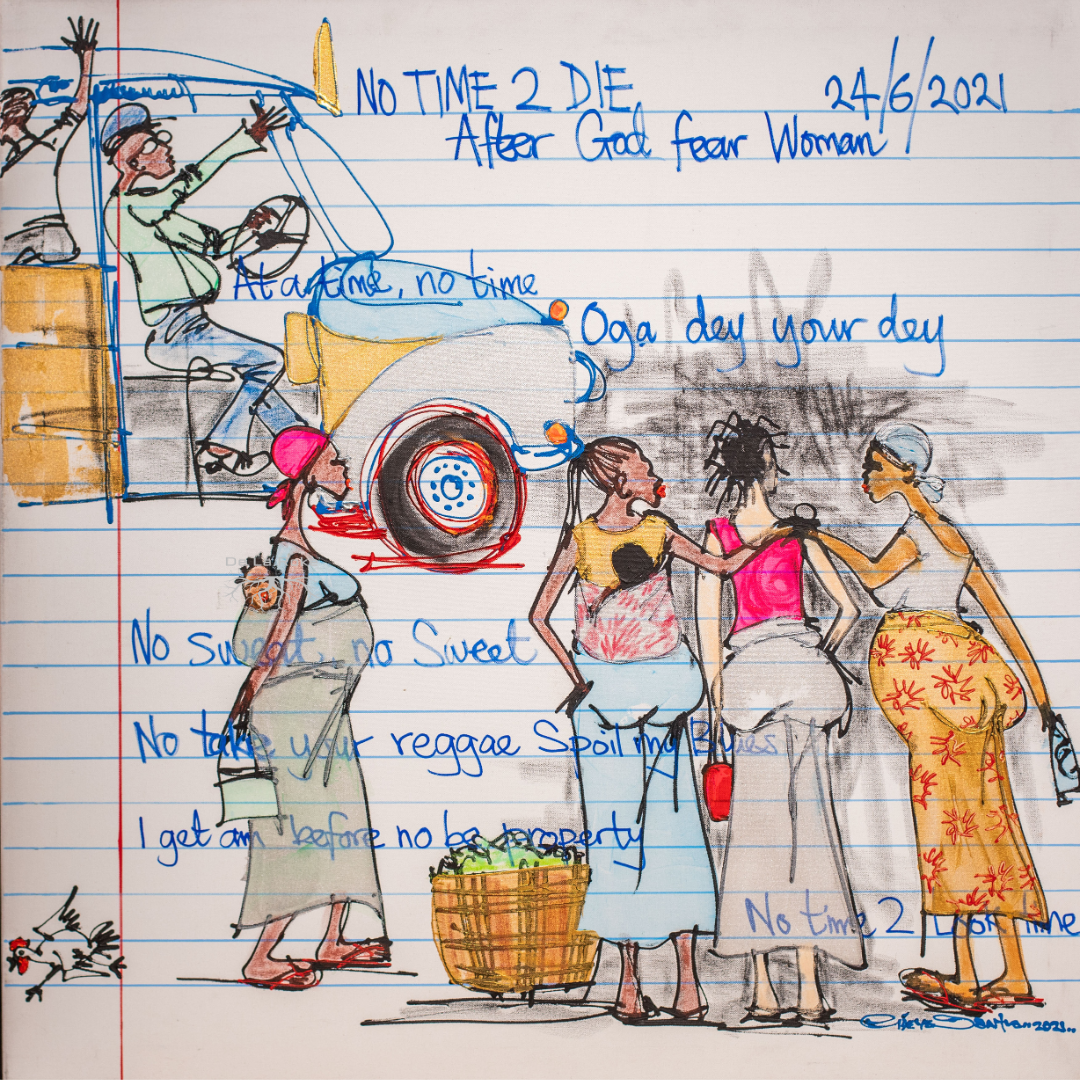 No TIME 2 DIE
24/6/2021
After God fear Woman
At a time, no time
Oga dey your dey
No sweat, no Sweet
No take your reggae Spoil my Blues
I get am before no be property
No time 2 Look time
2021..